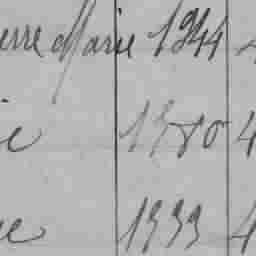 erre Marie 1944 4
ie 1880 4
ue 1933 4